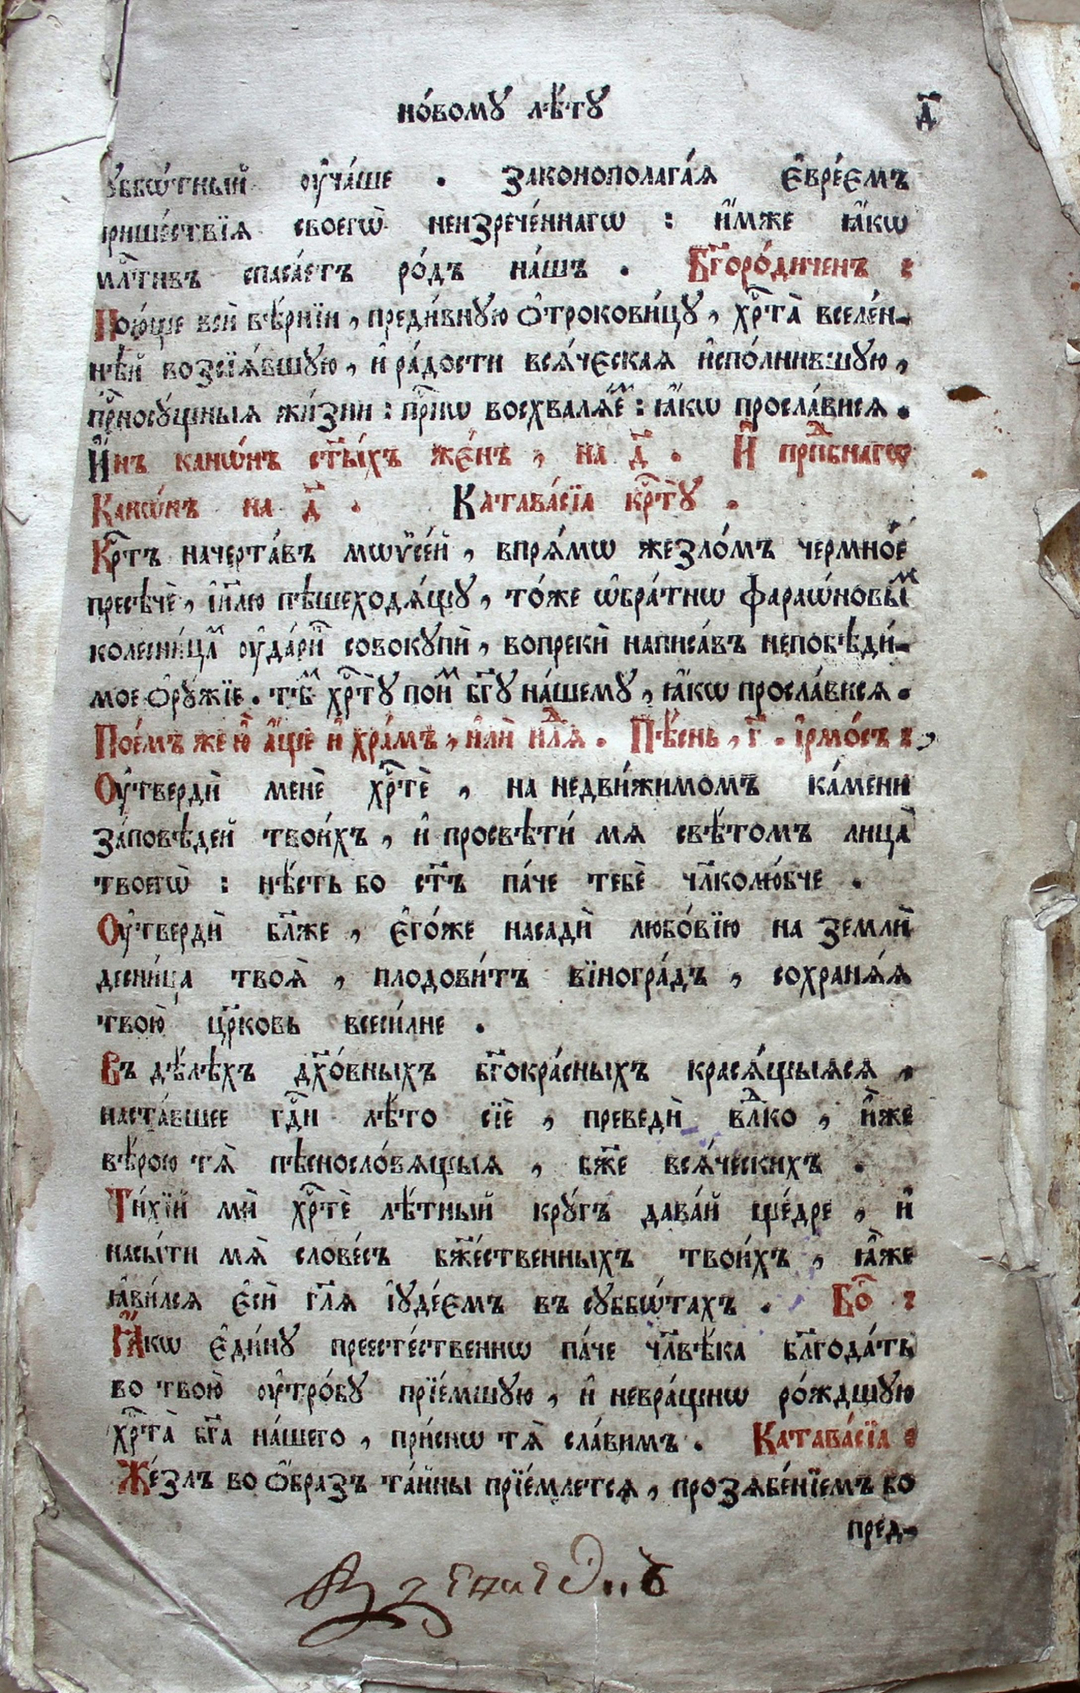 но́вому лѣ́ту д҃
уббѡ́тный оу҆ча́ше . законополага́ѧ є҆вре́ємъ
прише́ствїѧ своегѡ̀ неизрече́ннагѡ : и҆́мже ꙗ҆́кѡ
млⷭ҇тивъ спаса́етъ ро́дъ на́шъ . Бг҃оро́диченъ :
Пою́ще всѝ вѣ́рнїи , преди́вную ѻ҆трокови́цу , хрⷭ҇та̀ вселе́н-
нѣй возсїѧ́вшую , и҆ ра́дости всѧ́ческаѧ и҆спо́лнившую ,
прⷭ҇носу́щныѧ жи́зни : прⷭ҇нѡ восхвалѧ́еⷨ : ꙗ҆́кѡ просла́висѧ .
И҆́нъ канѡ́нъ ст҃ы́хъ же́нъ , на д҃ . И҆ прпⷣбнагѡ
Канѡ́нъ на д҃ . Катава́сїа крⷭ҇ту̀ .
Крⷭ҇тъ начерта́въ мѡѷсе́й , впрѧ́мѡ жезло́мъ чермно́е
пресѣчѐ , і҆и҃лю пѣшеходѧ́щу , то́же ѡ҆бра́тнѡ фараѡ́новыⷨ
колесни́цаⷨ оу҆да́рив̾ совокупѝ , вопрекѝ написа́въ непобѣди́-
мое ѻ҆рꙋ́жїе . тѣ́мⸯ хрⷭ҇ту̀ пои́мⸯ бг҃у на́шему , ꙗ҆́кѡ просла́висѧ .
Пое́мъ же ю҆̀ а҆́ще и҆ хра́мъ , и҆лѝ нⷣлѧ . Пѣ́снь , г҃ . і҆рмо́съ : ,
Оу҆твердѝ менѐ хрⷭ҇тѐ , на недви́жимомъ ка́мени
за́повѣдей твои́хъ , и҆ просвѣти́ мѧ свѣ́томъ лица̀
твоегѡ̀ : нѣ́сть бо ст҃ъ па́че тебѐ чл҃колю́бче .
Оу҆твердѝ бл҃же , є҆го́же насадѝ любо́вїю на землѝ
десни́ца твоѧ̀ , плодови́тъ вїногра́дъ , сохранѧ́ѧ
твою̀ цр҃ковь всеси́лне .
Въ дѣ́лѣхъ дх҃о́вныхъ бг҃окра́сныхъ красѧ́щыѧсѧ ,
наста́вшее гдⷭ҇и лѣ́то сїѐ , преведѝ влⷣко , и҆̀же
вѣ́рою тѧ̀ пѣснословѧ́щыѧ , бж҃е всѧ́ческихъ .
Ти́хїй мѝ хрⷭ҇тѐ лѣ́тный кру́гъ дава́й ще́дре , и҆
насы́ти мѧ̀ слове́съ бж҃е́ственныхъ твои́хъ , ꙗ҆̀же
ꙗ҆ви́лсѧ є҆сѝ гл҃ѧ і҆уде́ємъ въ суббѡ́тахъ . Боⷢ :
Ꙗ҆́кѡ є҆ди́ну преесте́ственнѡ па́че чл҃вѣ́ка бл҃года́ть
во твою̀ оу҆тро́бу прїе́мшую , и҆ невра́щнѡ ро́ждшую
хрⷭ҇та̀ бг҃а на́шего , при́снѡ тѧ̀ сла́вимъ . Катава́сїа :
Же́злъ во ѻ҆́бразъ та́йны прїе́млетсѧ , прозѧбе́нїемъ бо
пред-